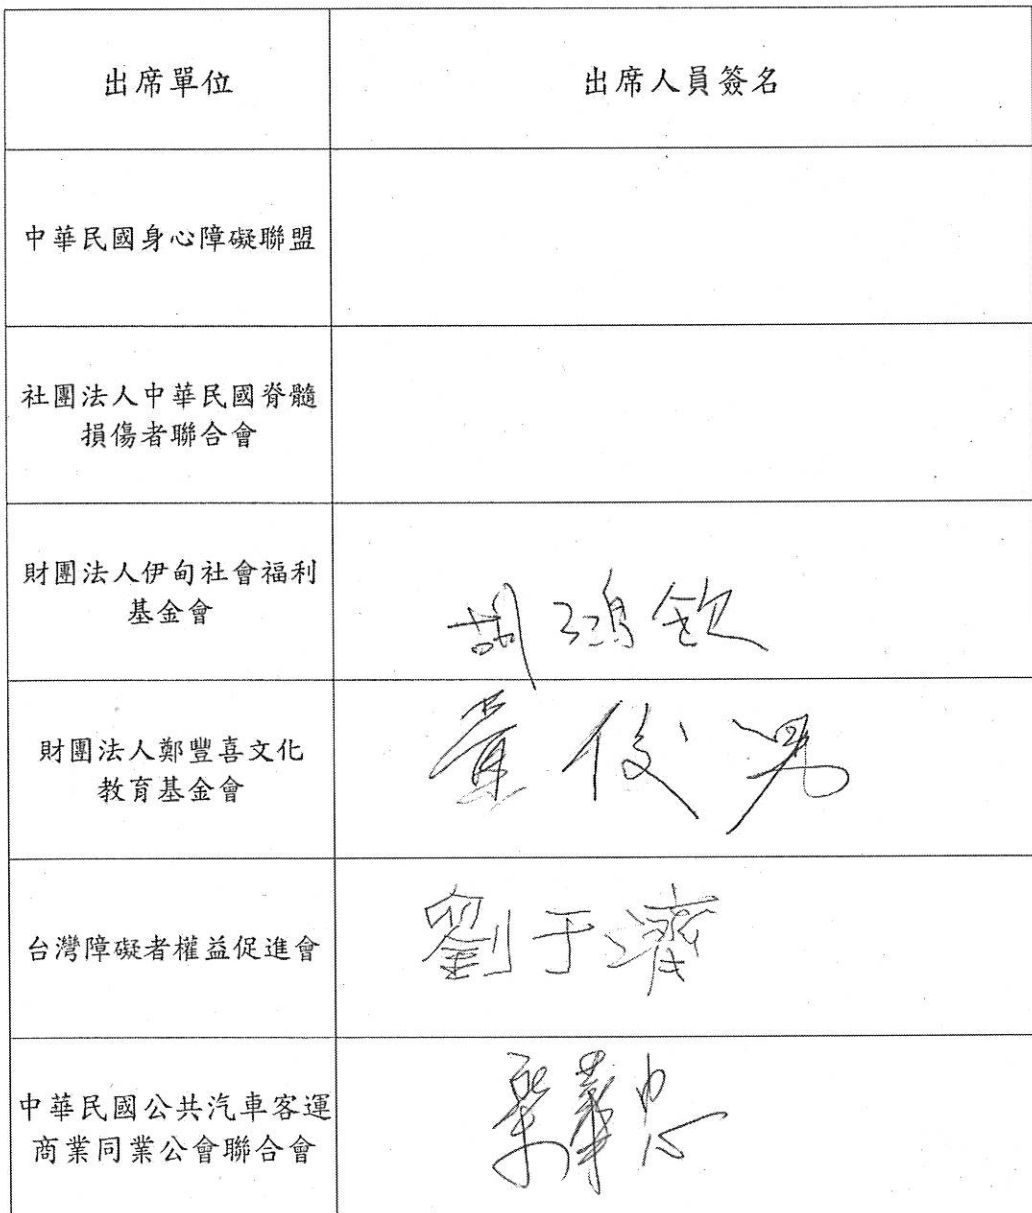 出席單位
出席人員簽名
中華民國身心障礙聯盟
社團法人中華民國脊髓
損傷者聯合會
財團法人伊甸社會福利
基金會
胡鴻欽
財團法人鄭豐喜文化
教育基金會
台灣障礙者權益促進會
劉于濟
中華民國公共汽車客運
商業同業公會聯合會